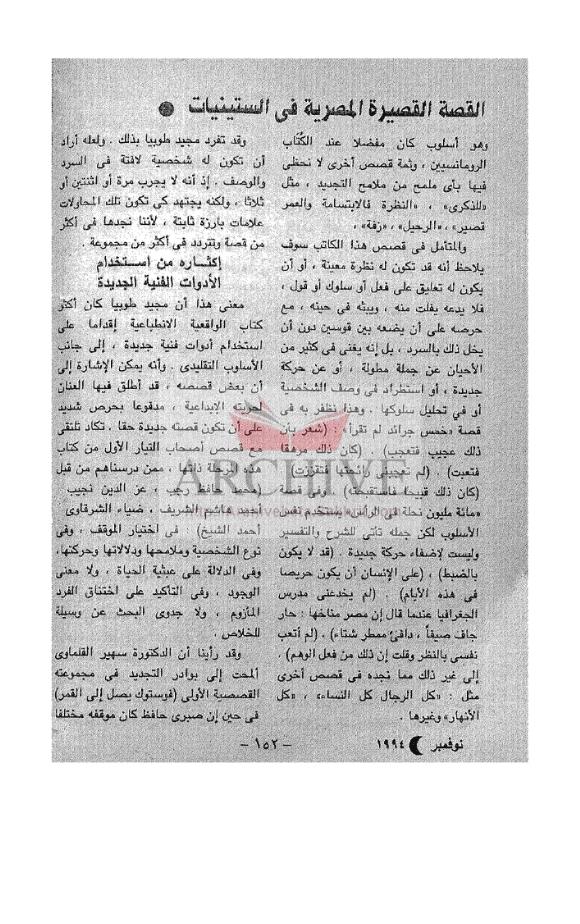 القصة القصيرة المصرية فى الستينيات
وهو أسلوب كان مفضلا عند الكُتّاب
الرومانسيين ، وثمة قصص أخرى لا نحظى
فيها بأى ملمح من ملامح التجديد ، مثل
«للذكرى» ، «النظرة فالابتسامة والعمر
قصير» ، «الرحيل» ، «زفة» ،
والمتأمل فى قصص هذا الكاتب سوف
يلاحظ أنه قد تكون له نظرة معينة ، أو أن
يكون له تعليق على فعل أو سلوك أو قول ،
فلا يدعه يفلت منه ، ويبثه فى حينه ، مع
حرصه على أن يضعه بين قوسين دون أن
يخل ذلك بالسرد ، بل إنه يغنى فى كثير من
الأحيان عن جملة مطولة ، أو عن حركة
جديدة ، أو استطراد فى وصف الشخصية
أو فى تحليل سلوكها . وهذا نظفر به فى
قصة «خمس جرائد لم تقرأ» : (شعر بأن
ذلك عجيب فتعجب) (كان ذلك مرهقا
فتعبت) . (لم تعجبنى رائحتها فتقززت)
(كان ذلك قبيحا فاستقبحته) . وفى قصة
«مائة مليون نحلة فى الرأس» استخدم نفس
الأسلوب لكن جمله تأتى للشرح والتفسير
وليست لإضفاء حركة جديدة . (قد لا يكون
بالضبط) ، (على الإنسان أن يكون حريصا
فى هذه الأيام) . (لم يخدعنى مدرس
الجغرافيا عندما قال إن مصر مناخها : حار
جاف صيفاً ، دافئ ممطر شتاء) . (لم أتعب
نفسى بالنظر وقلت إن ذلك من فعل الوهم) .
إلى غير ذلك مما نجده فى قصص أخرى
مثل : «كل الرجال كل النساء» ، «كل
الأنهار» وغيرها .
وقد تفرد مجيد طوبيا بذلك . ولعله أراد
أن تكون له شخصية لافتة فى السرد
والوصف . إذ أنه لا يجرب مرة أو اثنتين أو
ثلاثا ، ولكنه يجتهد كى تكون تلك المحاولات
علامات بارزة ثابتة ، لأننا نجدها فى أكثر
من قصة وتتردد فى أكثر من مجموعة .
إكثاره من استخدام
الأدوات الفنية الجديدة
معنى هذا أن مجيد طوبيا كان أكثر
كتاب الواقعية الانطباعية إقداما على
استخدام أدوات فنية جديدة ، إلى جانب
الأسلوب التقليدى . وأنه يمكن الإشارة إلى
أن بعض قصصه ، قد أطلق فيها العنان
لحريته الإبداعية ، مدفوعا بحرص شديد
على أن تكون قصته جديدة حقا . تكاد تلتقى
مع قصص أصحاب التيار الأول من كتاب
هذه المرحلة ذاتها ، ممن درسناهم من قبل
(محمد حافظ رجب ، عز الدين نجيب
أحمد هاشم الشريف ، ضياء الشرقاوى
أحمد الشيخ) . فى اختيار الموقف ، وفى
نوع الشخصية وملامحها ودلالاتها وحركتها،
وفى الدلالة على عبثية الحياة ، ولا معنى
الوجود ، وفى التأكيد على اختناق الفرد
المأزوم ، ولا جدوى البحث عن وسيلة
للخلاص .
وقد رأينا أن الدكتورة سهير القلماوى
ألمحت إلى بوادر التجديد فى مجموعته
القصصية الأولى (فوستوك يصل إلى القمر)
فى حين إن صبرى حافظ كان موقفه مختلفا
ARCHIVE
نوفمبر ١٩٩٤
- ١٥٢ -